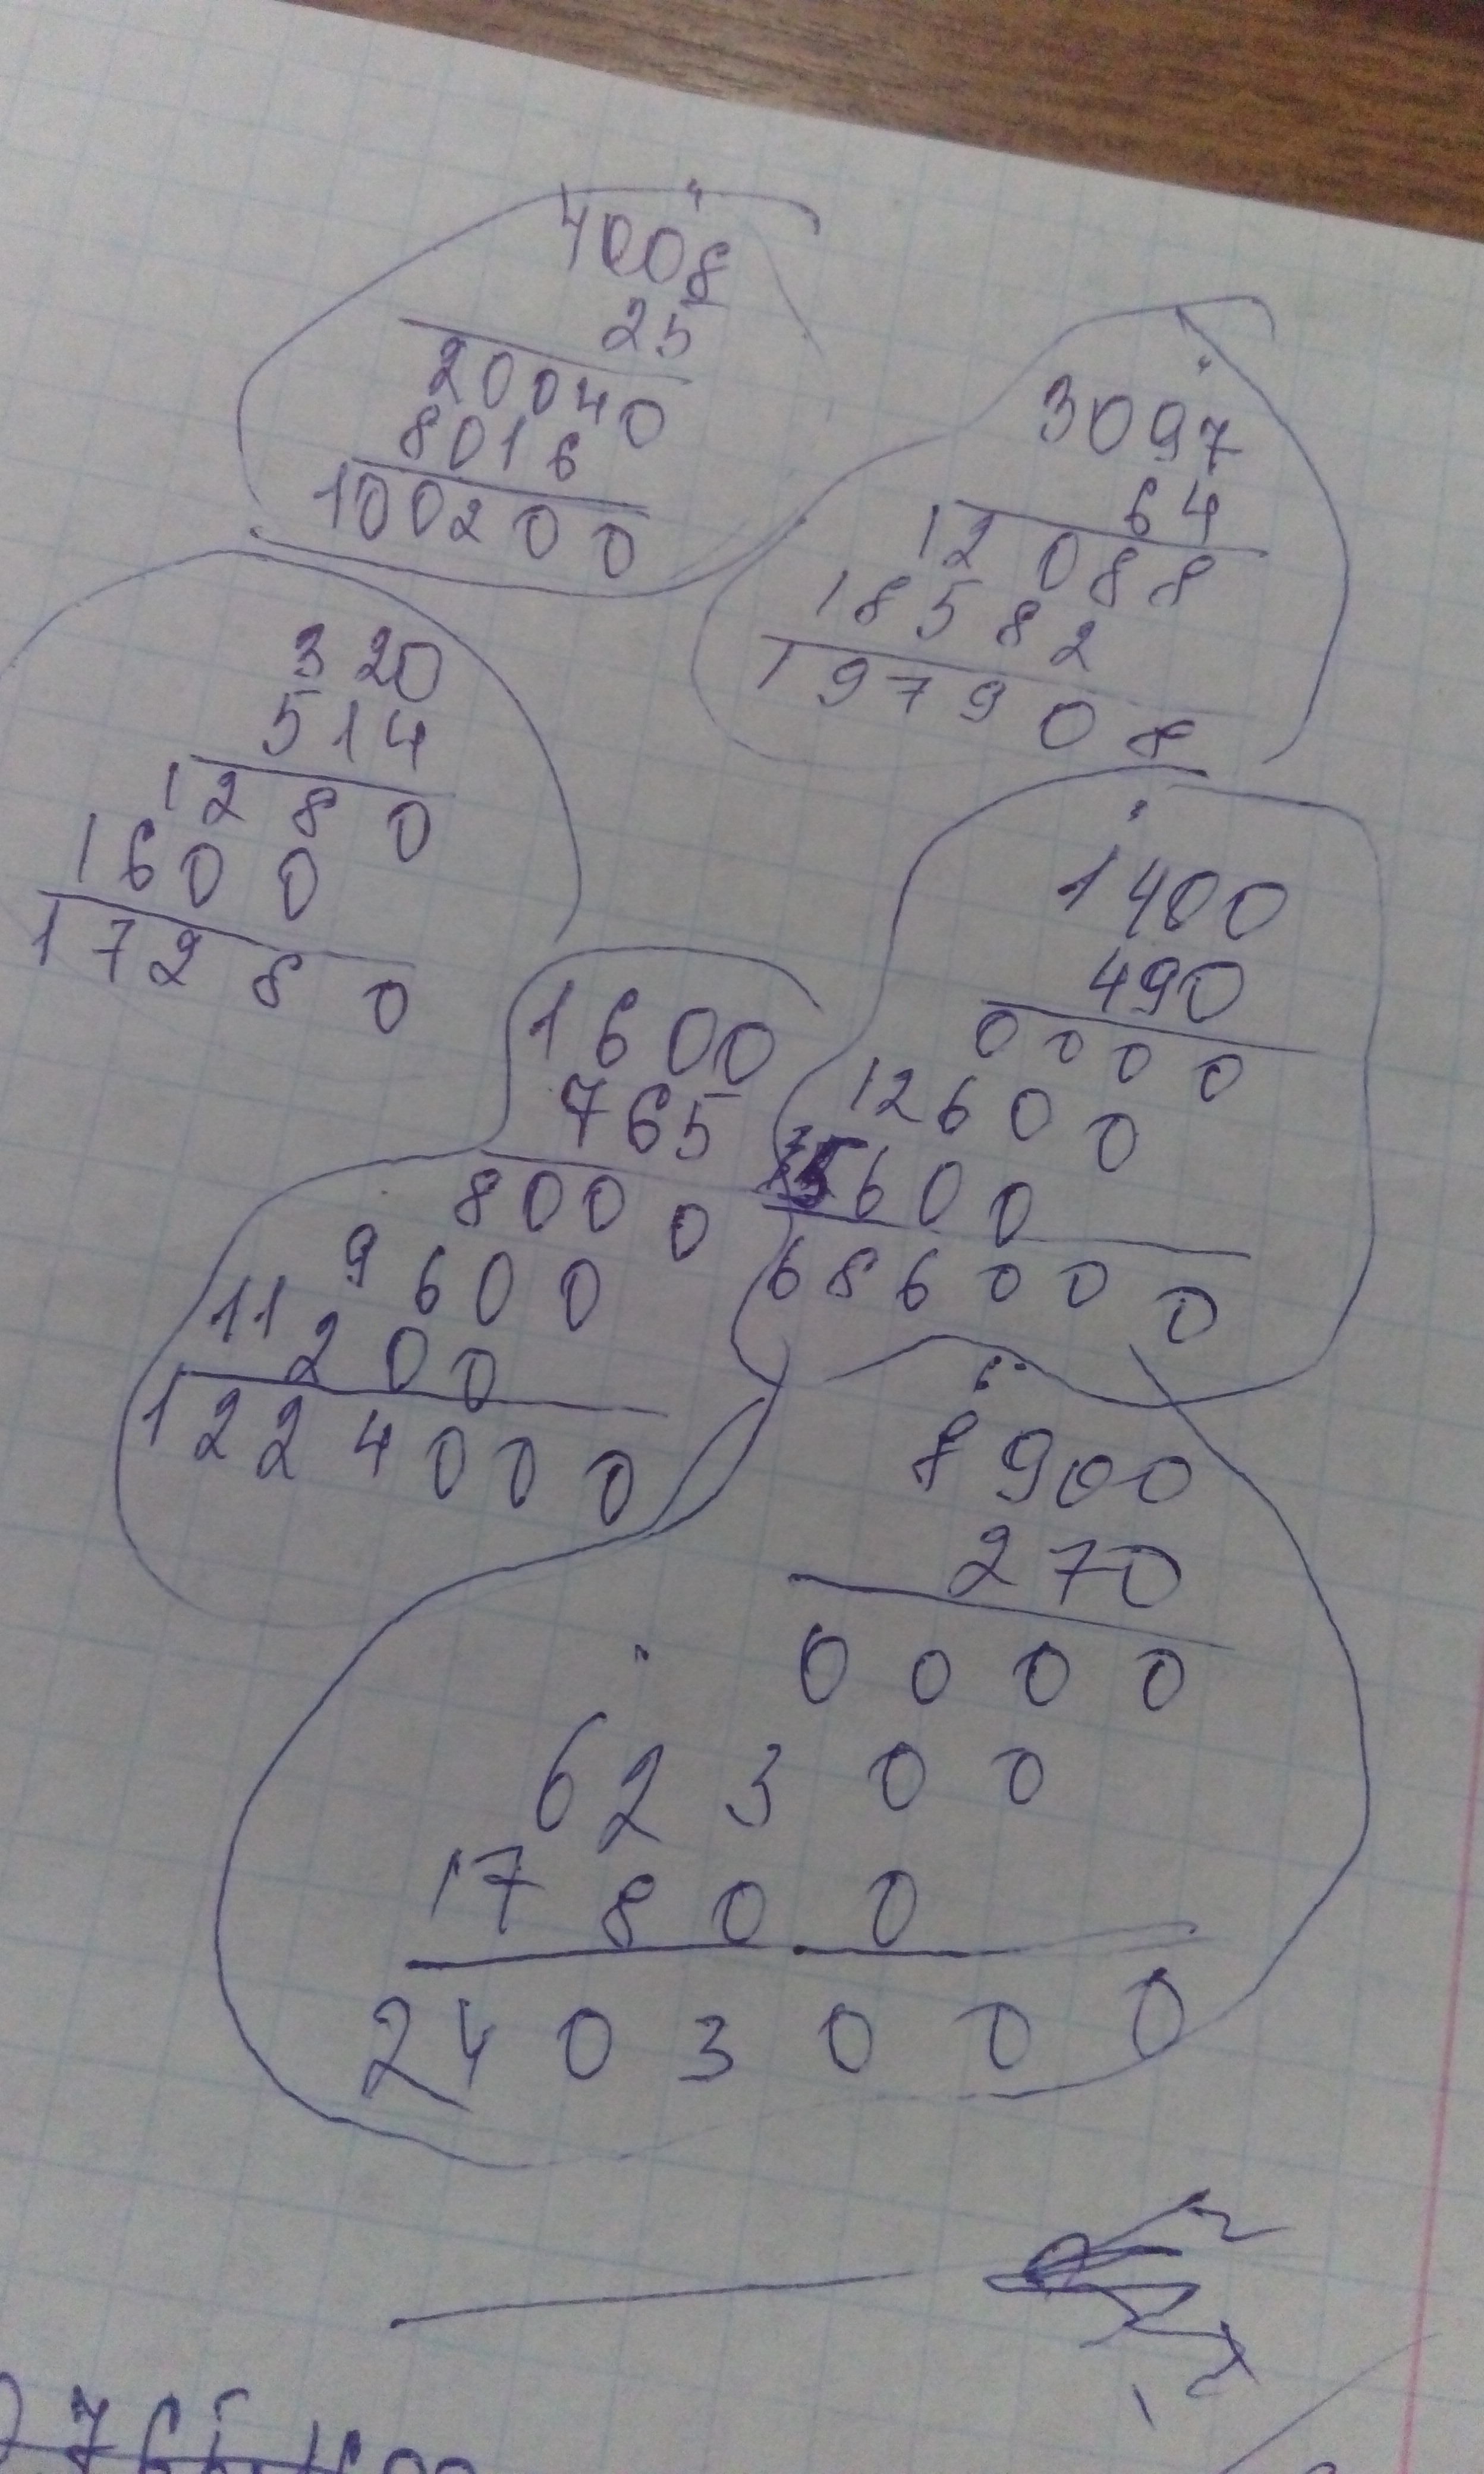 4008
25
20040
8016
100200
3097
64
12088
18582
197908
320
514
1280
1600
17280
1400
490
0000
12600
5600
686000
1600
765
8000
9600
11200
1224000
8900
270
0000
62300
17800
2403000